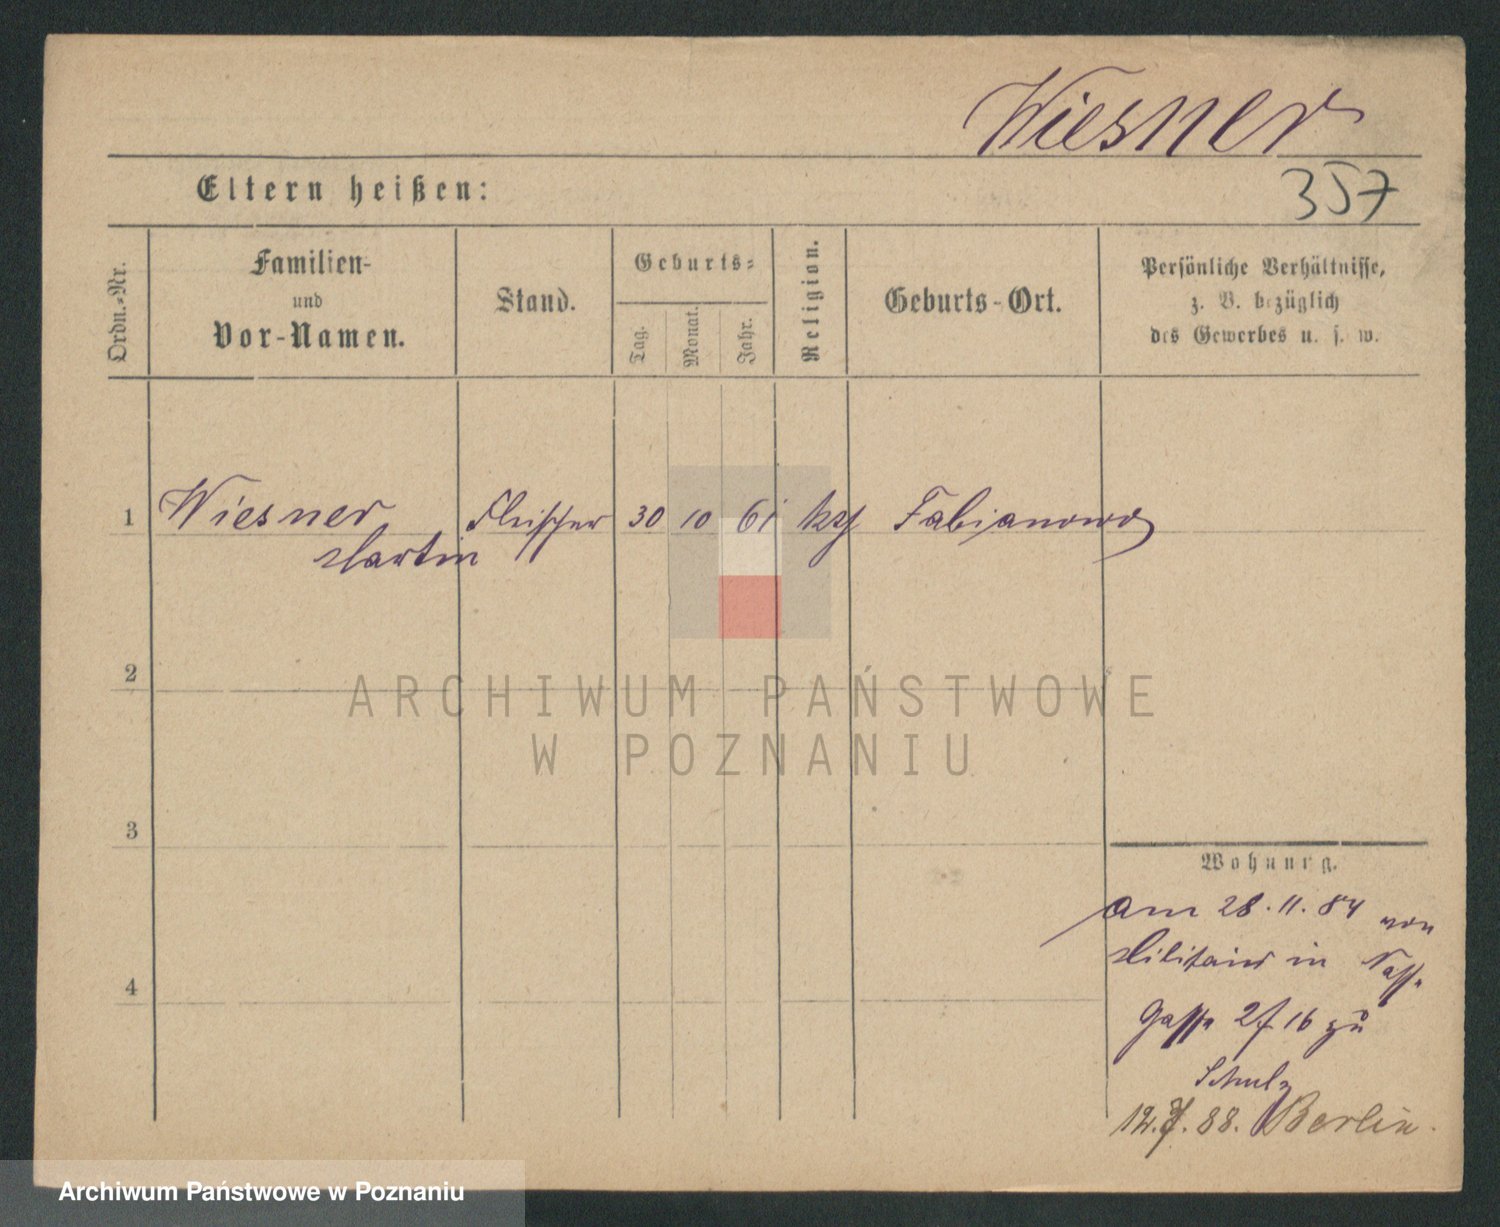 Wiesner
357
Eltern heißen:
Ordn.-Nr.
Familien-
und
Vor-Namen.
Stand.
Geburts-
Tag.
Monat.
Jahr.
Religion.
Geburts-Ort.
Persönliche Verhältnisse,
z. B. bezüglich
des Gewerbes u. s. w.
1 Wiesner Fleischer 30 10 61 Fabianowo
Martin
2
ARCHIWUM PAŃSTWOWE
W POZNANIU
3
Wohnung.
am 28.11.84 von
Militair in
Gasse 16 zu
Schulz
4
88. Berlin.
Archiwum Państwowe w Poznaniu